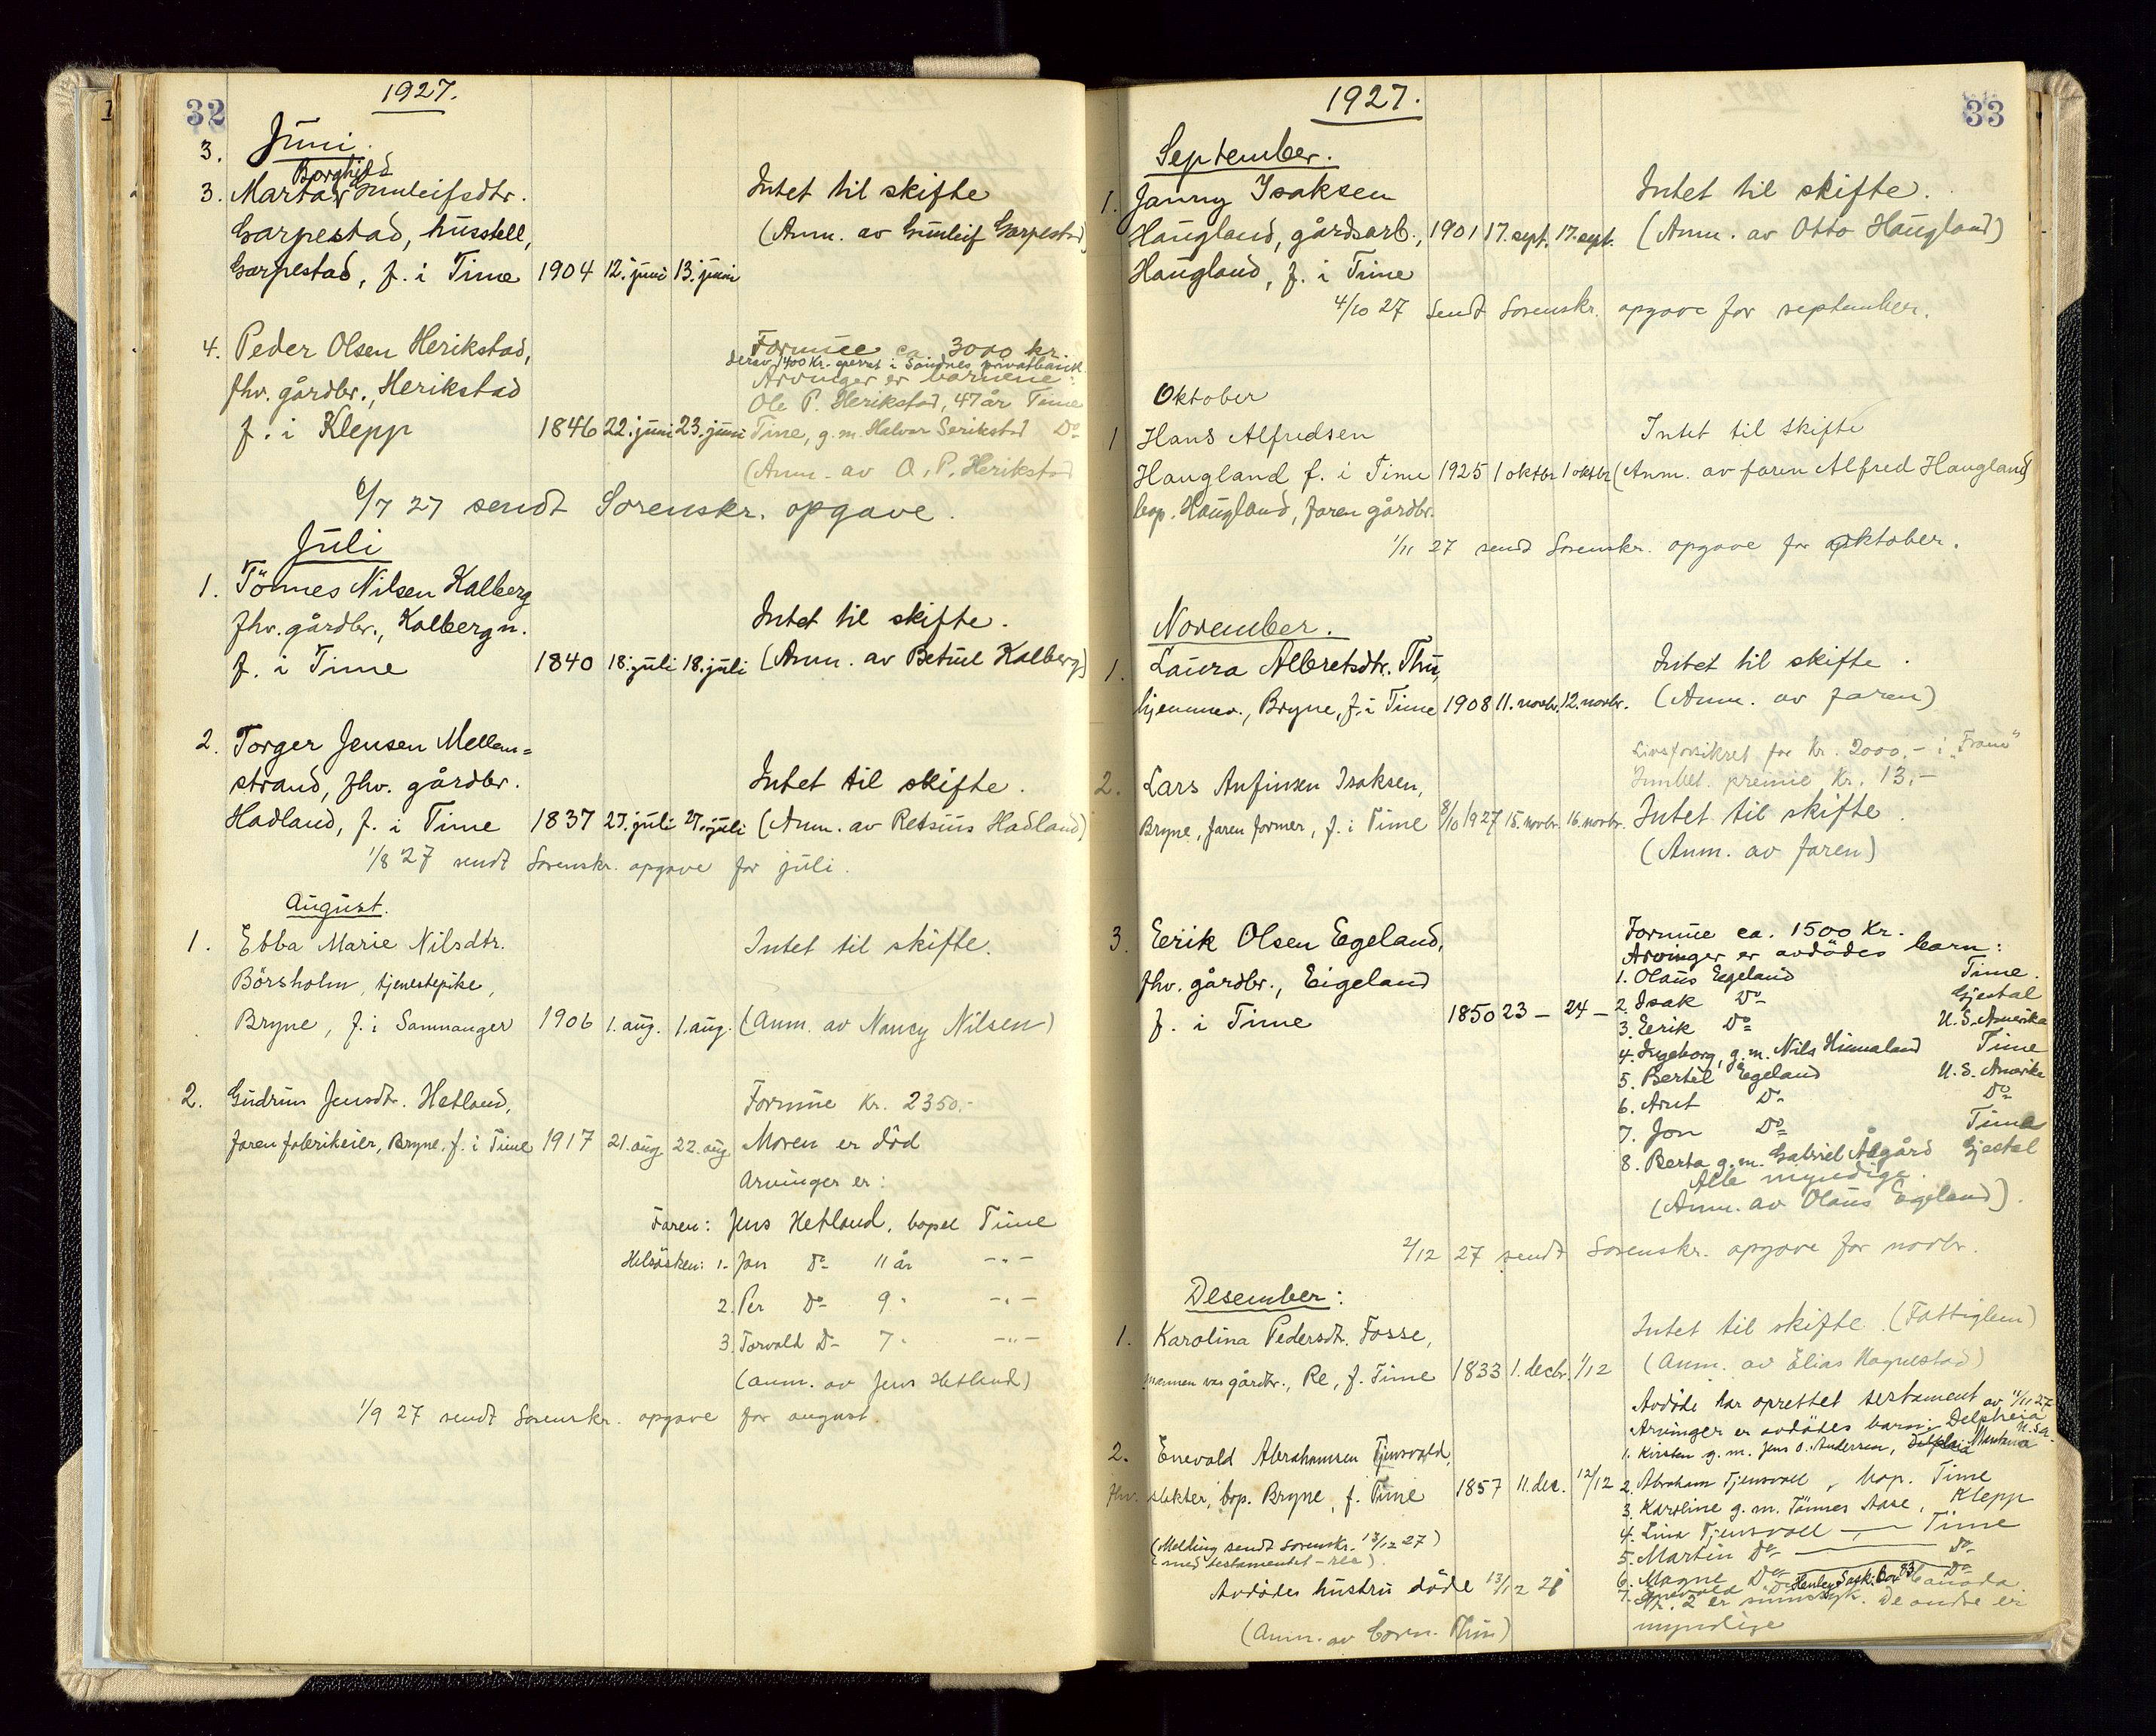 32
1927.
3. Juni.
Borghild
3. Marta Gunleifsdtr.
Garpestad, husstell,
Garpestad, f. i Time 1904 12. juni 13. juni
Intet til skifte
(Anm. av Gunleif Garpestad)
4. Peder Olsen Herikstad,
fhv. gårdbr., Herikstad
f. i Klepp 1846 22. juni 23. juni
Formue ca 3000 kr.
derav 1400 kr. i Sandnes privatbank
Arvinger er barnene:
Ole P. Herikstad, 47 år Time
Tine, g.m. Halvor Serikstad Do
(Anm. av O. P. Herikstad
6/7 27 sendt Sorenskr. opgave.
Juli
1. Tönnes Nilsen Kalberg
fhv. gårdbr., Kalberg n.
f. i Time 1840 18. juli 18. juli
Intet til skifte.
(Anm. av Betuel Kalberg)
2. Torger Jensen Mellem=
strand, fhv. gårdbr.
Hadland, f. i Time 1837 27. juli 27. juli
Intet til skifte.
(Anm. av Retsius Hadland)
1/8 27 sendt Sorenskr. opgave for juli.
August.
1. Ebba Marie Nilsdtr.
Börsholm, tjenestepike,
Bryne, f. i Samnanger 1906 1. aug. 1. aug.
Intet til skifte.
(Anm. av Nancy Nilsen)
2. Gudrun Jensdt. Hetland,
Faren fabrikeier, Bryne, f. i Time 1917 21. aug 22. aug
Formue Kr. 2350,-
Moren er död
Arvinger er:
Faren: Jens Hetland, bopel Time
Helsösken: 1. Jon Do 11 år -"-
2. Per Do 9 " -"-
3. Torvald Do 7 " -"-
(anm. av Jens Hetland)
1/9 27 sendt Sorenskr. opgave for august.
33
1927.
September.
1. Janny Isaksen
Haugland, gårdsarb., 1901 17. sept. 17. sept.
Haugland, f. i Time
Intet til skifte.
(Anm. av Otto Haugland)
4/10 27 sendt Sorenskr. opgave for september.
Oktober
1 Hans Alfredsen
Haugland f. i Time 1925 1 oktbr 1 oktbr
bop. Haugland, faren gårdbr.
Intet til skifte
(Anm. av faren Alfred Haugland)
1/11 27 send Sorenskr. opgave for oktober.
November.
1. Laura Albretsdtr. Thu,
hjemmev., Bryne, f. i Time 1908 11. novbr. 12. novbr.
Intet til skifte.
(Anm. av faren)
Livsforsikret for Kr. 2000,- i "Fram"
Innbet. premie Kr. 13,-
2. Lars Anfinsen Isaksen,
Bryne, faren former, f. i Time 8/10 1927 15. novbr. 16. novbr.
Intet til skifte.
(Anm. av faren)
3. Eerik Olsen Egeland,
fhv. gårdbr., Eigeland
f. i Time 1850 23 – 24 –
Formue ca. 1500 Kr.
Arvinger er avdödes barn:
1. Olaus Egeland Time.
2. Isak Do Gjestal
3. Eerik Do U.S. Amerika
4. Ingeborg, g.m. Nils Himaland Time
5. Bertel Egeland U.S. Amerika
6. Arnt Do Do
7. Jon Do Time
8. Berta g.m. Gabriel Ålgård Gjestal
Alle myndige.
(Anm. av Olaus Egeland).
2/12 27 sendt Sorenskr. opgave for novbr.
Desember:
1. Karolina Pedersdt. Fosse,
mannen var gårdbr., Re, f. Time 1833 1. decbr. 1/12
Intet til skifte. (Fattiglem)
(Anm. av Elias Hognestad)
2. Enevald Abrahamsen Tjensvold,
fhv. slakter, bop. Bryne, f. Time 1857 11. dec. 12/12
(Melding sendt sorenskr. 13/12 27)
(med testamentet – )
Avdödes hustru döde 13/12 21
(Anm. av Corn. Thu)
Avdöde har oprettet testament av 11/11 27
Arvinger er avdödes barn: Delphia
U.S.A.
1. Kirsten g. m. Jens O. Andersen, Montana
2. Abraham Tjensvoll, bop. Time
3. Karoline g. m. Tönnes Aase, Klepp
4. Lina Tjensvoll – " – Time
5. Martin Do Do
6. Magne Do Do
7. Enevald Do Henley Sask. Box 83 Canada.
Nr. 2 er sinnssyk. De andre er
myndige